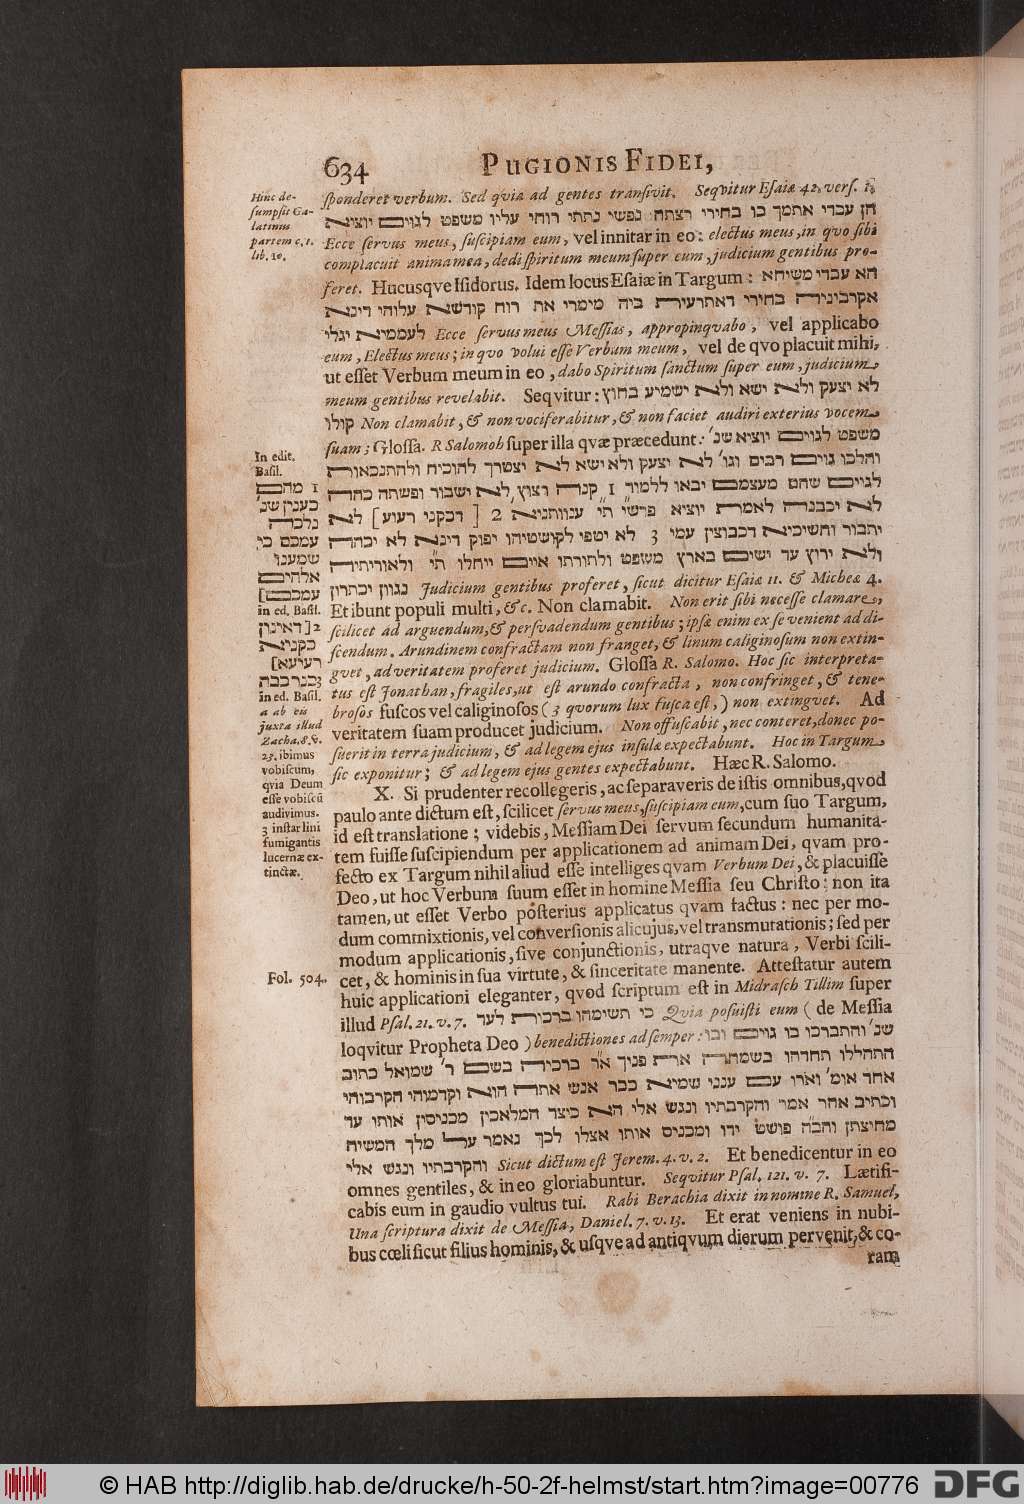 634 PUGIONIS FIDEI,
Hinc de-
sumpsit Ga-
latinus
partem c. 1.
lib. 10.
sponderet verbum. Sed qvia ad gentes transivit. Seqvitur Esaiæ 42. vers. 1.
הן עבדי אתמך בו בחירי רצתה נפשי נתתי רוחי עליו משפט לגוים יוציא
Ecce servus meus, suscipiam eum, vel innitar in eo: electus meus, in quo sibi
complacuit anima mea, dedi spiritum meum super eum, judicium gentibus pro-
feret. Hucusqve Isidorus. Idem locus Esaiæ in Targum: הא עבדי משיחא
אקרביניה בחירי דאתרעית ביה מימרי את רוח קודשא עלוהי דינא
לעממיא יגלי Ecce servus meus Messias, appropinqvabo, vel applicabo
eum, Electus meus; in quo volui esse Verbum meum, vel de qvo placuit mihi,
ut esset Verbum meum in eo, dabo Spiritum sanctum super eum, judicium
meum gentibus revelabit. Seqvitur: לא יצעק ולא ישא ולא ישמיע בחוץ
קולו Non clamabit, & non vociferabitur, & non faciet audiri exterius vocem
suam; Glossa. R Salomoh super illa qvæ præcedunt: משפט לגוים יוציא שנ'
והלכו גוים רבים וגו' לא יצעק ולא ישא לא יצטרך להוכיח ולהתנבאות
לגוים שהם מעצמם יבאו ללמוד 1 קנה רצוץ לא ישבור ופשתה כהה
לא יכבנה לאמת יוציא פרשי תי ענוותניא 2 [ דכקני רעוע] לא
יתבור וחשיכיא דכבוצין עמי 3 לא יטפי לקושטיהו יפוק דינא לא יכהה
ולא ירוץ עד ישים בארץ משפט ולתורתו איים ייחלו ת"י ולאוריתיה
נגוון יכתרון Judicium gentibus proferet, sicut dicitur Esaiæ 11. & Micheæ 4.
Et ibunt populi multi, &c. Non clamabit. Non erit sibi necesse clamare,
scilicet ad arguendum, & persvadendum gentibus; ipsæ enim ex se venient ad di-
scendum. Arundinem confractam non franget, & linum caliginosum non extin-
gvet, ad veritatem proferet judicium. Glossa R. Salomo. Hoc sic interpreta-
tus est Jonathan, fragiles, ut est arundo confracta, non confringet, & tene-
brosos fuscos vel caliginosos ( 3 qvorum lux fusca est, ) non extingvet. Ad
veritatem suam producet judicium. Non offuscabit, nec conteret, donec po-
suerit in terra judicium, & ad legem ejus insulæ expectabunt. Hoc in Targum
sic exponitur; & ad legem ejus gentes expectabunt. Hæc R. Salomo.
In edit.
Basil.
1 מהם
כענין שנ'
נלכה
עמכם כי
שמענו
אלהים
עמכם]
in ed. Basil.
2] דאינון
כקניא
רעיעא]
3 כנר כבת
in ed. Basil.
a ab eis
juxta illud
Zacha. 8. v.
23. ibimus
vobiscum,
qvia Deum
esse vobiscū
audivimus.
3 instar lini
fumigantis
lucernæ ex-
tinctæ.
X. Si prudenter recollegeris, ac separaveris de istis omnibus, qvod
paulo ante dictum est, scilicet servus meus, suscipiam eum, cum suo Targum,
id est translatione; videbis, Messiam Dei servum secundum humanita-
tem fuisse suscipiendum per applicationem ad animam Dei, qvam pro-
fecto ex Targum nihil aliud esse intelliges qvam Verbum Dei, & placuisse
Deo, ut hoc Verbum suum esset in homine Messia seu Christo: non ita
tamen, ut esset Verbo posterius applicatus qvam factus: nec per mo-
dum commixtionis, vel conversionis alicujus, vel transmutationis; sed per
modum applicationis, sive conjunctionis, utraqve natura, Verbi scili-
cet, & hominis in sua virtute, & sinceritate manente. Attestatur autem
Fol. 504.
huic applicationi eleganter, qvod scriptum est in Midrasch Tillim super
illud Psal. 21. v. 7. כי תשיתהו ברכות לעד Qvia posuisti eum ( de Messia
loqvitur Propheta Deo ) benedictiones ad semper: שנ' והתברכו בו גוים ובו
התהללו תחדהו בשמחה את פניך א"ר ברכיה בשם ר' שמואל כתוב
אחד אומ' וארו עם ענני שמיא כבר אנש אתה הוא וקדמוהי הקרבוהי
וכתיב אחר אמר והקרבתיו ונגש אלי הא כיצד המלאכין מכניסין אותו עד
מחיצתן והב"ה פושט ידו ומכניס אותו אצלו לכך נאמר על מלך המשיח
והקרבתיו ונגש אלי Sicut dictum est Jerem. 4. v. 2. Et benedicentur in eo
omnes gentiles, & in eo gloriabuntur. Seqvitur Psal. 121. v. 7. Lætifi-
cabis eum in gaudio vultus tui. Rabi Berachia dixit in nomine R. Samuel,
Una scriptura dixit de Messia, Daniel. 7. v. 13. Et erat veniens in nubi-
bus cœli sicut filius hominis, & usqve ad antiqvum dierum pervenit, & co-
ram
© HAB http://diglib.hab.de/drucke/h-50-2f-helmst/start.htm?image=00776 DFG